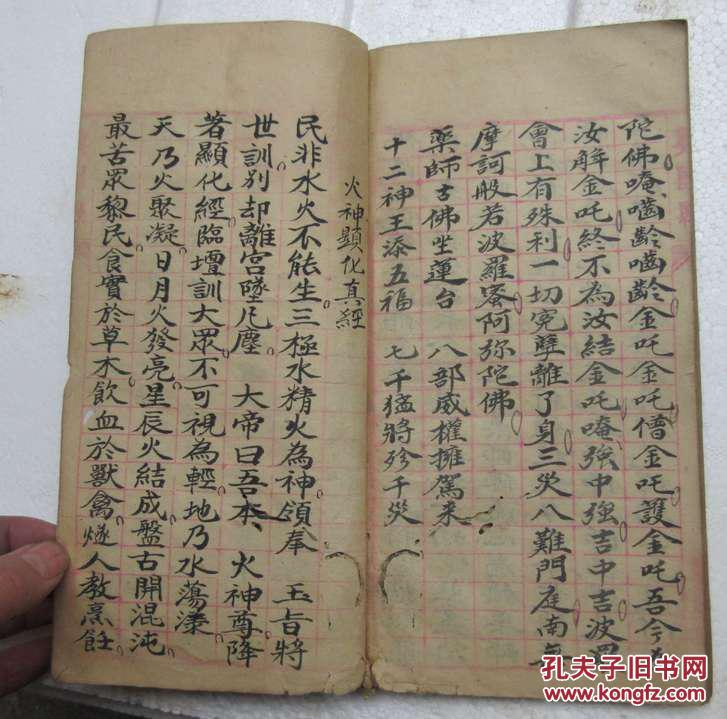 陀佛唵嚙齡嚙齡金吒金吒僧金吒護金吒吾今
汝解金吒終不為汝結金吒唵強中強吉中吉波
會上有殊利一切寃孽離了身三災八難門庭南
摩訶般若波羅蜜阿弥陀佛
藥師古佛坐蓮台 八部威權擁駕来
十二神王添五福 七千猛將殄千災
火神顯化真經
民非水火不能生三極水精火為神領奉 玉旨將
世訓別却離宮墜凡塵 大帝曰吾本、火神尊降
著顯化經臨壇訓大眾不可視為輕地乃水蕩漾
天乃火聚凝日月火發亮星辰火結成盤古開混沌
最苦眾黎民食實於草木飲血於獸禽燧人教烹飪
孔夫子旧书网
www.kongfz.com